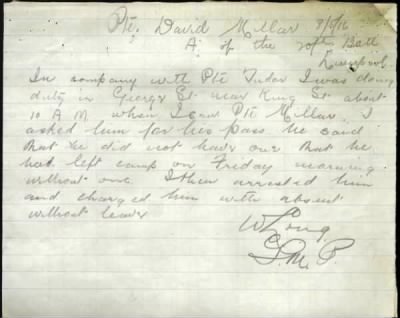 Pte, David Millar 8/5/16
A. of the 20th Batt
Liverpool
In company with Pte Tudor I was doing
duty in George St near King St about
10 A M when I saw Pte Millar. I
asked him for his pass he said
that he did not have one that he
had left camp on Friday morning
without one I then arrested him
and charged him with absent
without leave
W Long
G.M.P.